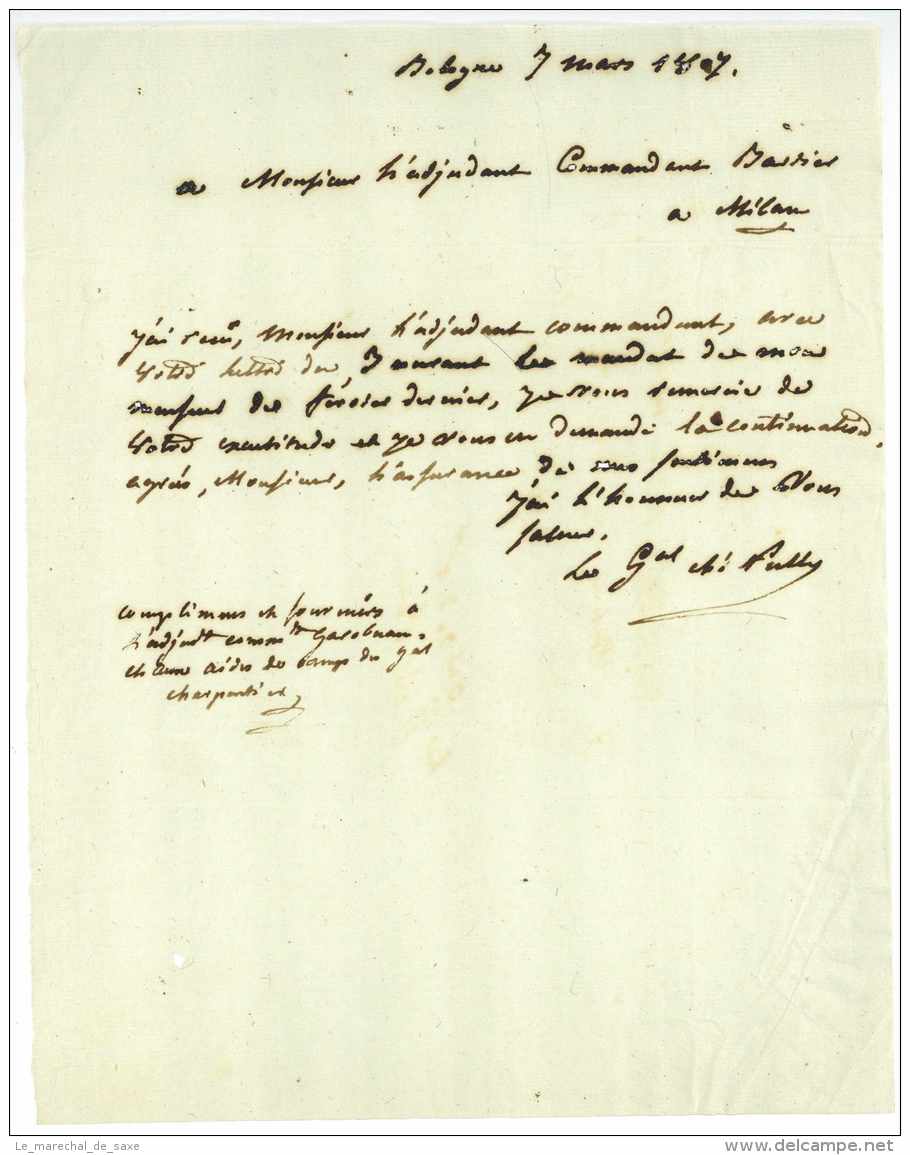 Bologne 7 mars 1807.
a Monsieur L'adjudant Commandant
a Milan
J'ai reçu, Monsieur L'adjudant commandant, avec
votre lettre du 3 courant Le mandat de mon
de février dernier, je vous remercie de
votre exactitude et je vous en demande la continuation.
agréés, Monsieur, L'assurance de mes sentimens
J'ai L'honneur de Vous
saluer.
Le Gal Pully
complimens et à
L'adjudt commt
et aux aides de camp du gal
charpentier
Le_marechal_de_saxe
www.delcampe.net